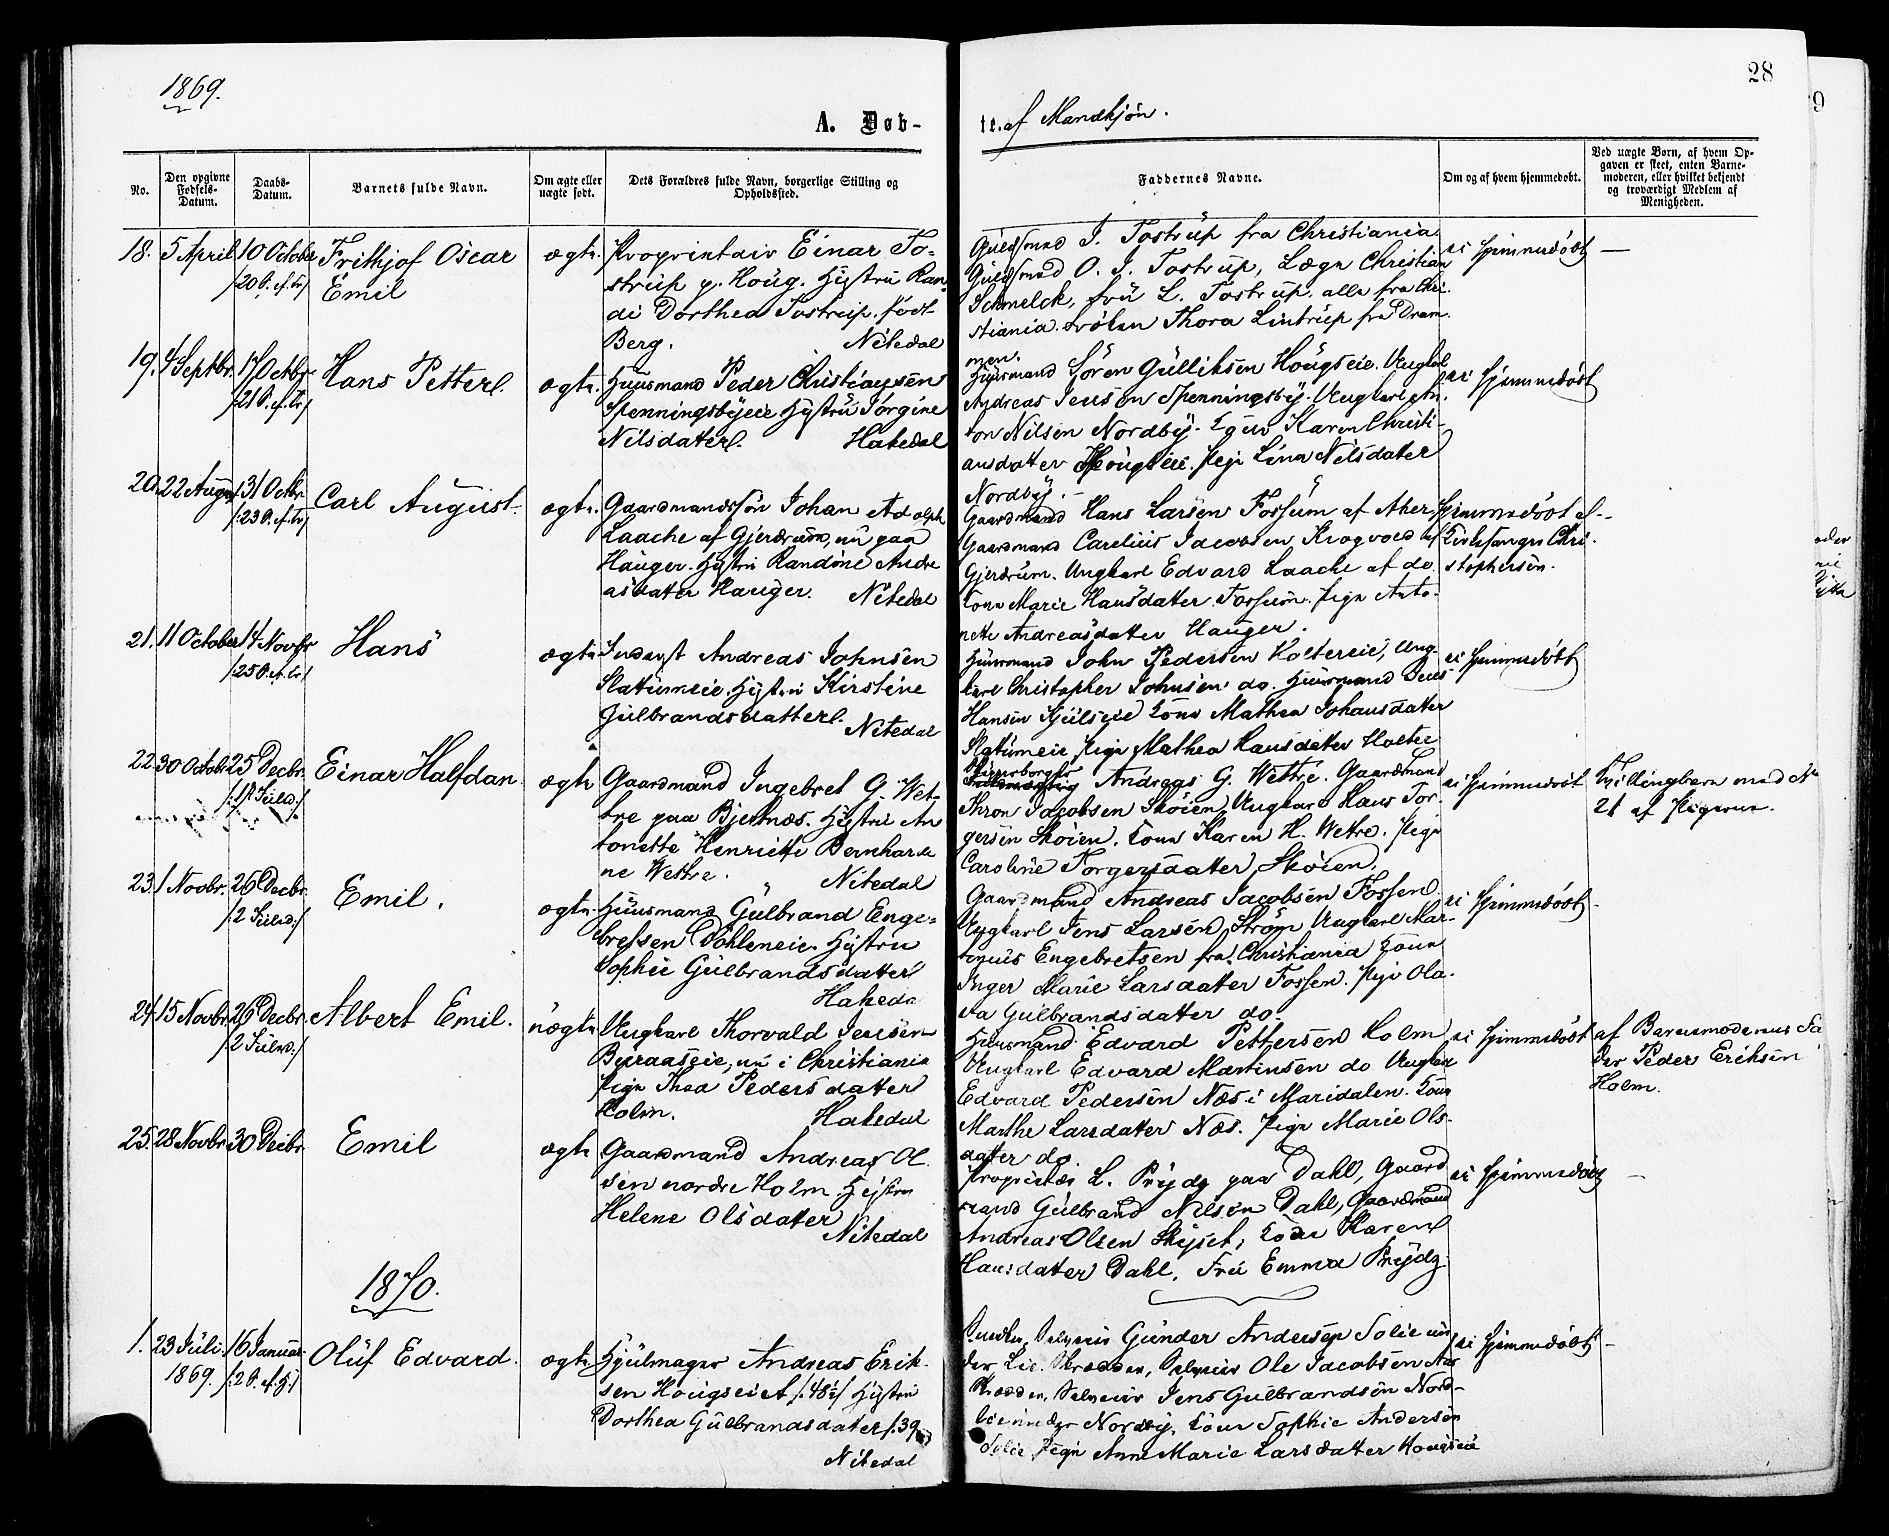 1869.
28
A. Døb-
te. af Mandkjøn.
No.
Den opgivne Fødsels-Datum.
Daabs-Datum.
Barnets fulde Navn.
Om ægte eller uægte født.
Dets Forældres fulde Navn, borgerlige Stilling og Opholdssted.
Faddernes Navne.
Om og af hvem hjemmedøbt.
Ved uægte Børn, af hvem Op-
gaven er skeet, enten Barne-
moderen, eller hvilket bekjendt
og troværdigt Medlem af
Menigheden.
18. 5 April 10 October
/20 S. ef. Tr/
Frithjof Oscar
Emil
ægte
Proprietair Einar To-
strup p. Houg. Hustru Ran-
di Dorthea Tostrup. født
Berg. Nitedal
Guldsmed J. Tostrup fra Christiania
Guldsmed O. J. Tostrup, Læge Christian
Schmelck, Frü L. Tostrup, alle fra Chri-
stiania. Frøken Thora Lintrup fra Dram-
men.
ei hjemmedøbt —
19. 4 Septbr. 17 Octbr.
/21 S. ef. Tr/
Hans Petter.
ægte.
Huusmand Peder Christiansen
Spenningsbyeie Hustru Jørgine
Nilsdatter. Hakedal
Huusmand Søren Gulliksen Hougseie. Ungkarl
Andreas Jensen Spenningsby. Ungkarl An-
ton Nilsen Nordby. Kone Karen Christi-
ansdatter Hougseie. Pige Lina Nilsdatter
Nordby. -
ei hjemmedøbt
20. 22 August 31 Octbr.
/23 S. ef. Tr/
Carl August.
ægte.
Gaardmandssøn Johan Adolph
Laache af Gjerdrum, nu paa
Hauger. Hustru Randine Andre
asdatter Hauger. Nitedal
Gaardmand Hans Larsen Fossum af Aker,
Gaardmand Carelius Jacobsen Krogvold af
Gjerdrum. Ungkarl Edvard Laache af do
Kone Marie Hansdatter Fossum. Pige Anto-
nette Andreasdatter Hauger.
hjemmedøbt af
Kirkesanger Chri-
stophersen.
21. 11 October 14 Novbr
/25 S. ef. Tr/
Hans
ægte
Inderst Andreas Johnsen
Slatumeie. Hustru Kirstine
Gulbrandsdatter. Nitedal
Huusmand John Pedersen Holtereie, Ung-
karl Christopher Johnsen do. Huusmand Jens
Hansen Kjulseie Kone Mathea Johansdatter
Slatumeie Pige Mathea Hansdatter Holter
ei hjemmedøbt
22. 30 Octobr. 25 Decbr.
/1st Juled:/
Einar Halfdan
ægte
Gaardmand Ingebret G. Wet-
tre paa Bjertnæs. Hustru An
tonette Henriette Bernhardi
ne Wettre. Nitedal
Andreas G. Wettre. Gaardmand
Thron Jacobsen Skøien, Ungkarl Hans Tor-
gersen Skøien. Kone Karen H. Wetre. Pige
Caroline Torgersdatter Skøien.
ei hjemmedøbt
Tvillingbarn med No
21 af Pigerne.
23. 1 Novbr. 26 Decbr.
/2 Juled:/
Emil.
ægte
Huusmand Gulbrand Enge-
bretsen Dahleneie. Hustru
Sophie Gulbrandsdatter
Hakeda
Gaardmand Andreas Jacobsen Fossen
Ungkarl Jens Larsen Strøm Ungkarl Mar-
tinius Engebretsen fra Christiania Kone
Inger Marie Larsdatter Fossen. Pige Ola-
va Gulbrandsdatter do.
ei hjemmedøbt -
24. 15 Novbr. 26 Decbr.
/2 Juled:/
Albert Emil.
uægte
Ungkarl Thorvald Jensen
Byraaseie, nu i Christiania
Pige Thea Pedersdatter
Holm. Hakedal
Huusmand Edvard Pettersen Holm
Ungkarl Edvard Martinsen do Ungkarl
Edvard Pedersen Næs i Maridalen. Kone
Marthe Larsdatter Næs. Pige Marie Ols-
datter do.
ei hjemmedøbt
af Barnemoderens Fa
der Peder Eriksen
Holm.
25. 28 Novbr. 30 Decbr.
Emil
ægte
Gaardmand Andreas Ol-
sen nordre Holm. Hustru
Helene Olsdatter
Nitedal
Proprietær L. Prydz paa Dahl, Gaard
mand Gulbrand Nilsen Dahl, Gaardmand
Andreas Olsen Skyset, Kone Karen
Hansdatter Dahl. Frü Emma Prydz.
ei hjemmedøbt —
1870.
1. 23 Juli
1869.
16 Januar
/2 S. ef. H:/
Oluf Edvard.
ægte
Hjulmager Andreas Erik-
sen Hougseiet /:48:/ Hustru
Dorthea Gulbrandsdatter /:39
Nitedal
Gunder Andersen Solie un
der Lie. Ole Jacobsen
Jens Gulbrandsen Nord-
lie under Nordby. Kone Sophie Andersen
Solie, Pige Anne Marie Larsdatter Hougseie
ei hjemmedøbt —